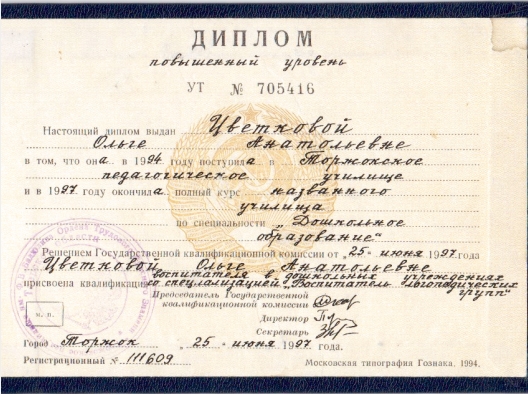 ДИПЛОМ
повышенный уровень
УТ № 705416
Настоящий диплом выдан Цветковой
Ольге Анатольевне
в том, что она в 1994 году поступила в Торжокское
педагогическое училище
и в 1997 году окончила полный курс названного
училища
по специальности „Дошкольное
образование“
Решением Государственной квалификационной комиссии от „25“ июня 1997 года
Цветковой Ольге Анатольевне
воспитателя в дошкольных учреждениях
присвоена квалификация со специализацией „Воспитатель логопедических
групп“
Председатель Государственной
квалификационной комиссии
Директор
Секретарь
м. п.
Город Торжок „25“ июня 1997 года.
Регистрационный № 111609
Московская типография Гознака. 1994.